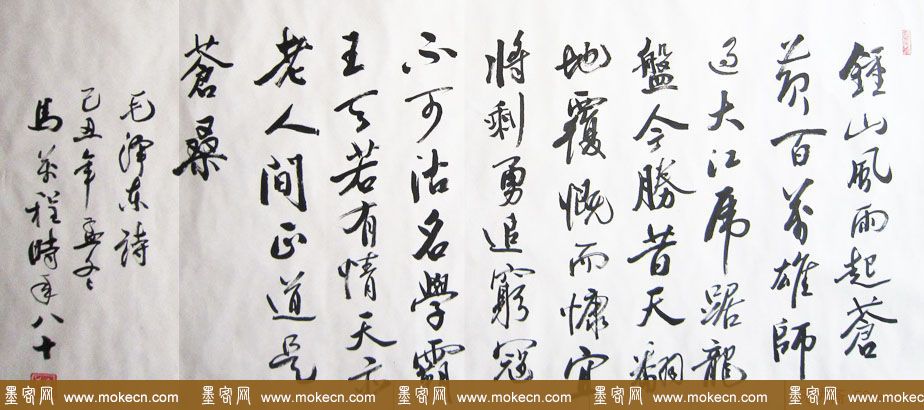 鍾山風雨起蒼
黄百萬雄師
過大江虎踞龍
盤今勝昔天翻
地覆慨而慷宜
將剩勇追窮寇
不可沽名學霸
王天若有情天亦
老人間正道是
蒼桑
毛澤東詩
己丑年孟冬
馬萬程時年八十
墨客网 www.mokecn.com 墨客网 www.mokecn.com 墨客网 www.mokecn.com 墨客网 www.mokecn.com